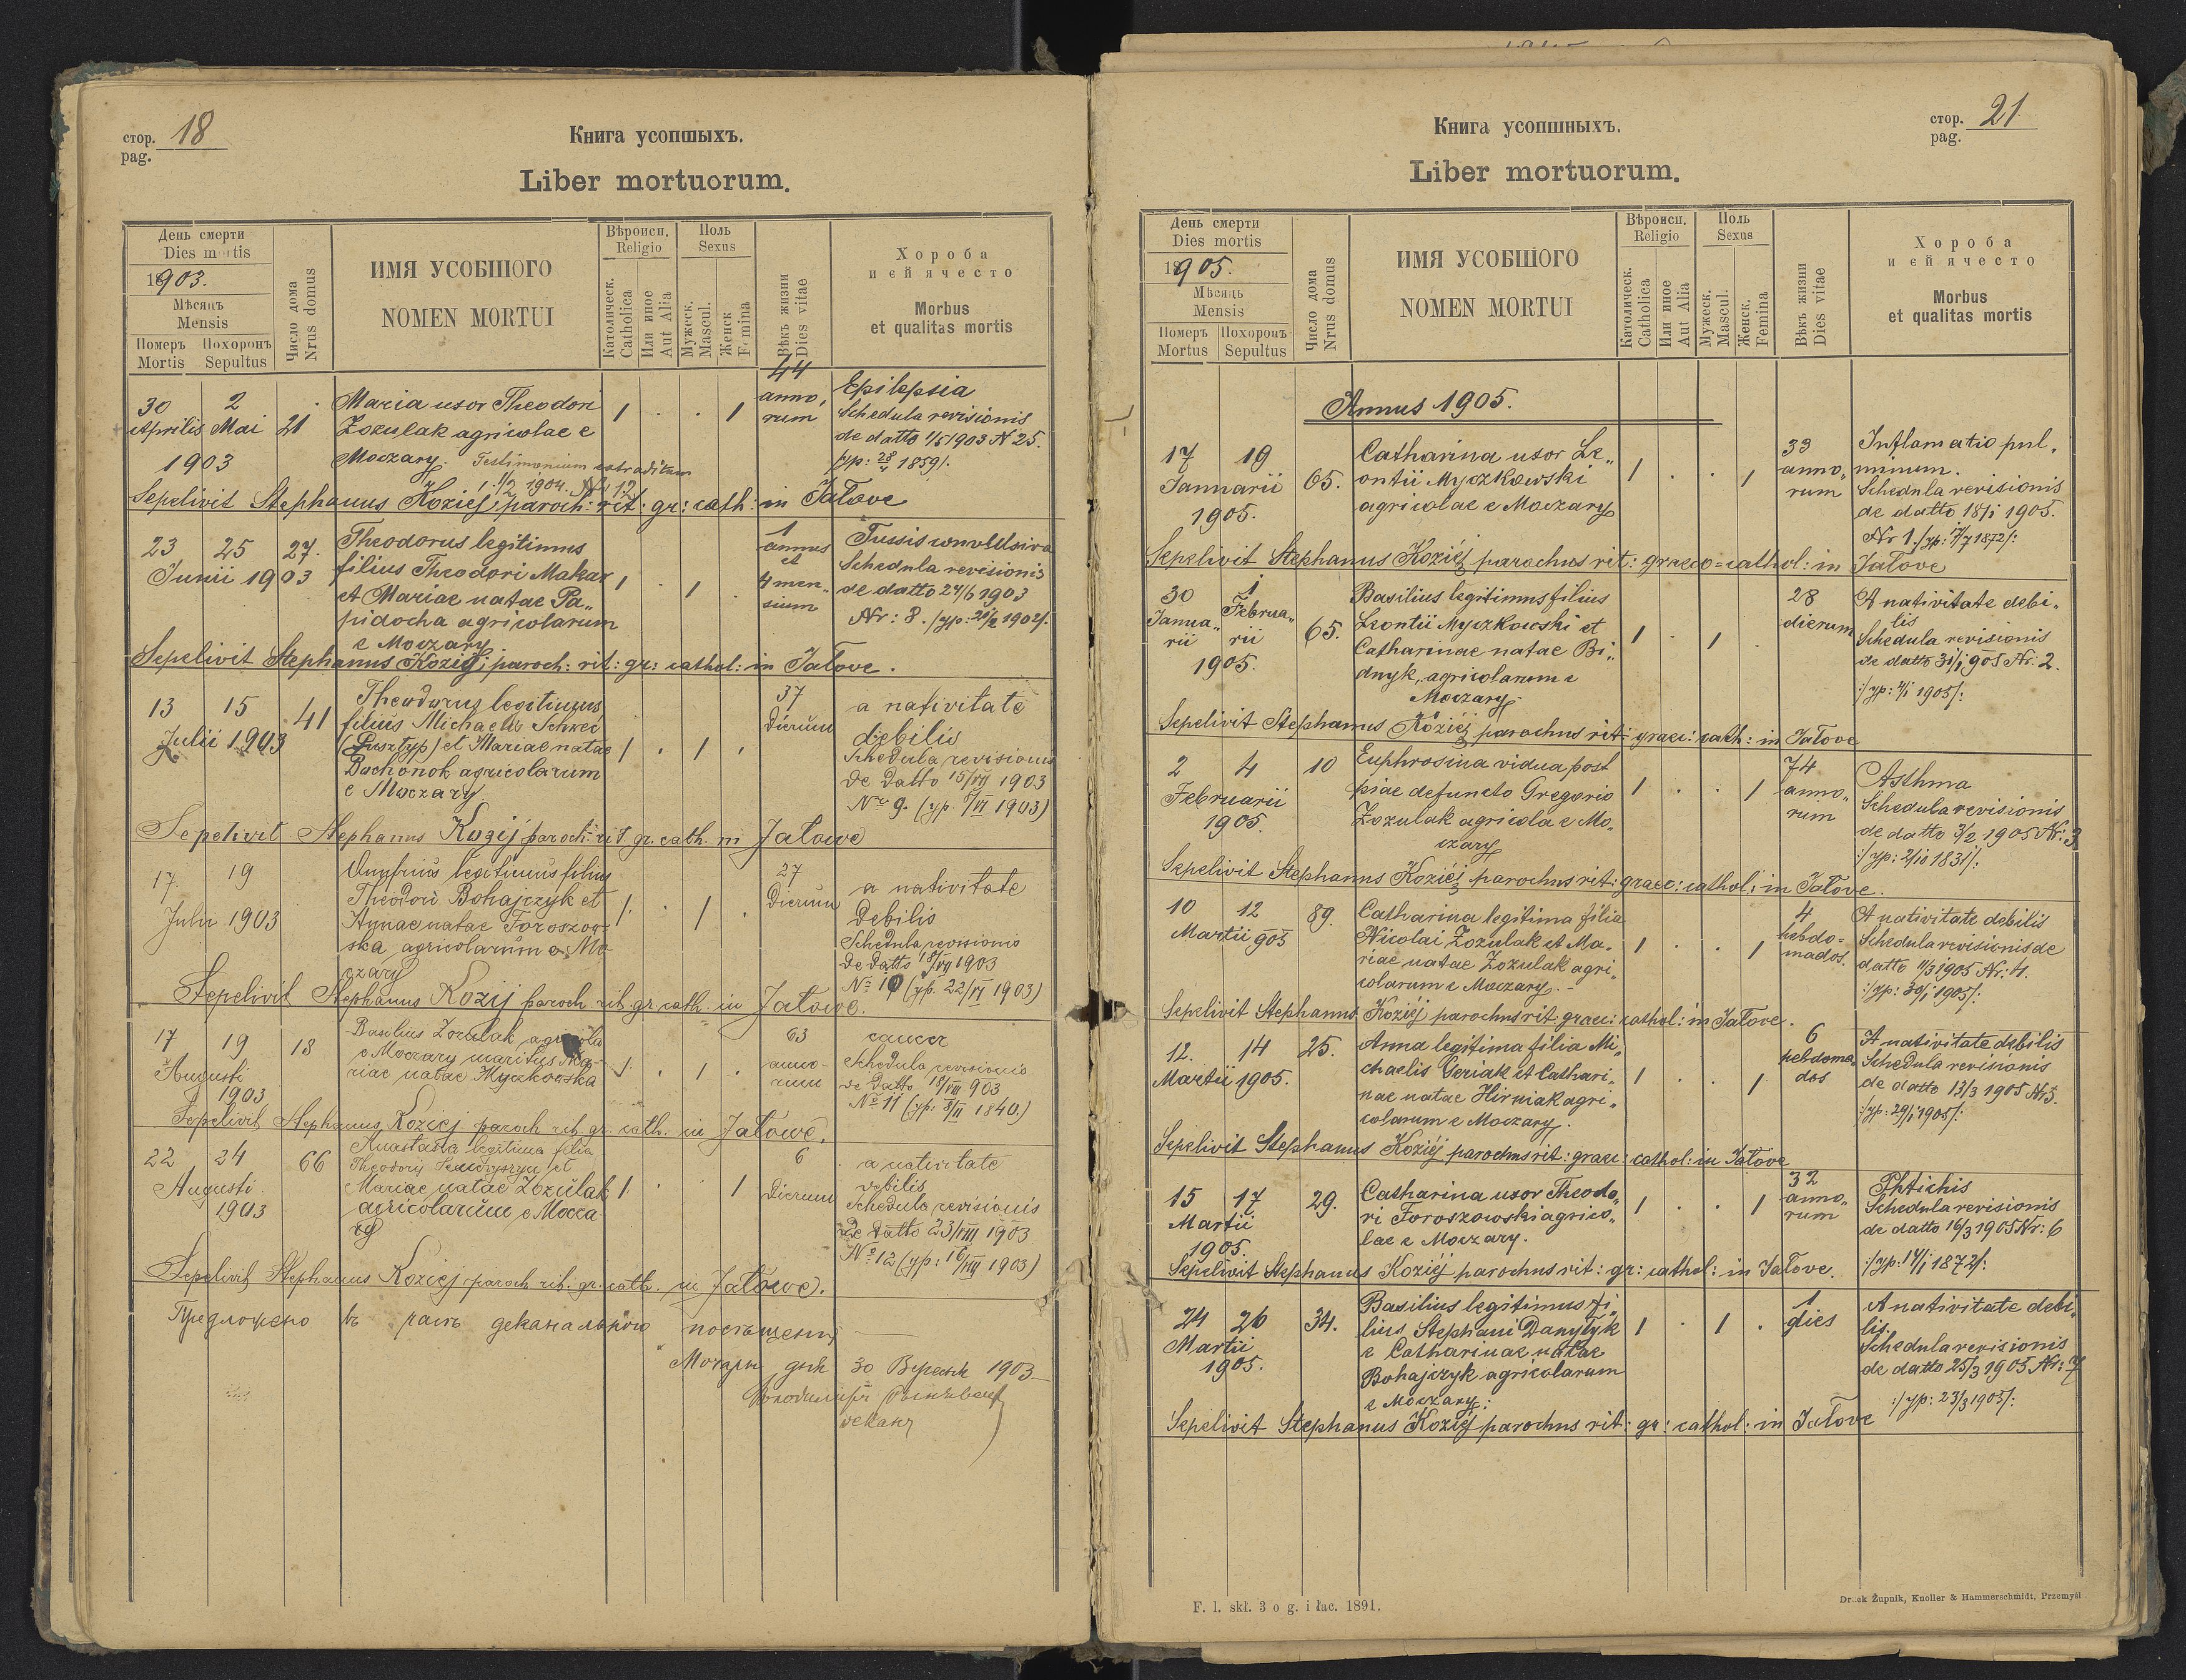 стор. 18
pag.
Книга усопшыхъ.
Liber mortuorum.
День смерти
Dies mortis
1903.
Мѣсяцъ
Mensis
Померъ Похоронъ
Mortis Sepultus
Число дома
Nrus domus
ИМЯ УСОБШОГО
NOMEN MORTUI
Вѣроисп.
Religio
Католическ.
Catholica
Или иное
Aut Alia
Поль
Sexus
Мужеск.
Mascul.
Женск
Femina
Вѣкъ жизни
Dies vitae
Хороба
и єй ячесто
Morbus
et qualitas mortis
30 Aprilis 2 Mai 1903
21
Maria uxor Theodori
Zozulak agricolae e
Moczary. Testimonium extraditum
1/2 1904. № 12
1 . . 1
44
anno,,
rum
Epilepsia
Schedula revisionis
de datto 1/5 1903 N 25.
/yp: 28/4 1859/.
Sepelivit Stephanus Koziej paroch: rit: gr: cath: in Jałove
23 25
Junii 1903
27.
Theodorus legitimus
filius Theodori Makar
et Mariae natae Pa,,
pidocha agricolarum
e Moczary
1 . 1 .
1
annus
et
4 men,,
sium
Tussis convulsiva
Schedula revisionis
de datto 24/6 1903
Nr: 8. /yp: 21/2 1902/.
Sepelivit Stephanus Koziej paroch: rit: gr: cathol: in Jałove.
13 15
Julii 1903
41
Theodorus legitimus
filius Michaelis Schwec
(Pusztyp) et Mariae natae
Dochonob agricolarum
e Moczary
1 . 1 .
37
Dierum
a nativitate
debilis
Schedula revisionis
de datto 15/VII 1903
Nr 9. (yp. 7/VI 1903)
Sepelivit Stephanus Kozij paroch. rit. gr. cath. in Jałowe
17. 19
Julii 1903
Onufrius legitimus filius
Theodori Bohajczyk et
Annae natae Foroszow-
ska agricolarum e Mo-
czary
1. . 1 .
27
Dierum
a nativitate
Debilis
Schedula revisionis
de datto 18/VII 1903
No 10 (yp. 22/VI 1903)
Sepelivit Stephanus Kozij paroch. rit. gr. cath. in Jałowe.
17 19
Augusti
1903
18
Basilius Zozulak agricola
e Moczary maritus Ma-
riae natae Myczkowska
1. . 1 .
63
anno-
rum
cancer
Schedula revisionis
de datto 18/VIII 903
No 11 (yp: 8/II 1840.)
Sepelivit Stephanus Koziej paroch. rit. gr. cath. in Jałowe.
22 24
Augusti
1903
66
Anastasia legitima filia
Theodorij et
Mariae natae Zozulak
agricolarum e Mocza-
ry
1. . . 1
6
Dierum
a nativitate
debilis
Schedula revisionis
De datto 23/VIII 1903
No 12 (yp: 16/VIII 1903)
Sepelivit Stephanus Koziej paroch. rit. gr. cath. in Jałowe).
Предложено въ часѣ деканального посѣщенія
Мочары дня 30 Вересня 1903
деканъ
Книга усопшныхъ.
стор. 21.
pag.
Liber mortuorum.
День смерти
Dies mortis
1905.
Мѣсяць
Mensis
Померъ Похоронъ
Mortus Sepultus
Число дома
Nrus domus
ИМЯ УСОБШОГО
NOMEN MORTUI
Вѣроисп.
Religio
Католическ.
Catholica
Или иное
Aut Alia
Поль
Sexus
Мужеск.
Mascul.
Женск.
Femina
Вѣкъ жизни
Dies vitae
Хороба
и єй ячесто
Morbus
et qualitas mortis
Annus 1905.
17 19
Januarii
1905.
65.
Catharina uxor Le,,
ontii Myczkowski
agricolae e Moczary
1 . . 1
33
anno,,
rum
Inflamatio pul,,
minum.
Schedula revisionis
de datto 18/1 1905.
Nr 1. /yp: 17/7 1872/:
Sepelivit Stephanus Koziej parochus rit: graeco=cathol: in Jałove
30 Janua,,rii 1 Februa,,rii
1905.
65.
Basilius legitimus filius
Leontii Myczkowski et
Catharinae natae Bi,,
dnyk, agricolarum e
Moczary
1 . 1 .
28
dierum
A nativitate debi,,
lis
Schedula revisionis
de datto 31/1 905 Nr: 2.
:/yp: 2/1 1905/:
Sepelivit Stephanus Koziej parochus rit: graec: cath: in Jałove
2 4
Februarii
1905.
10
Euphrosina vidua post
piae defuncto Gregorio
Zozulak agricola e Mo,,
czary
1 . . 1
74
anno,,
rum
Asthma
Schedula revisionis
de datto 3/2 1905 Nr: 3
:/yp: 2/10 1831/:
Sepelivit Stephanus Koziej parochus rit: graec: cathol: in Jałove.
10 12
Martii 905
89.
Catharina legitima filia
Nicolai Zozulak et Ma,,
riae natae Zozulak agri,,
colarum e Moczary. -
1 . . 1
4
hebdo=
mados.
A nativitate debilis
Schedula revisionis de
datto 11/3 1905 Nr: 4.
:/yp: 30/1 1905/:
Sepelivit Stephanus Koziej parochus rit: graec: cathol: in Jałove.
12. 14
Martii 1905.
25.
Anna legitima filia Mi,,
chaelis Geriak et Cathari,,
nae natae Hirniak agri,,
colarum e Moczary.
1 . . 1
6
hebdoma,,
dos
A nativitate debilis
Schedula revisionis
de datto 13/3 1905 Nr 5.
:/yp: 29/1 1905/:
Sepelivit Stephanus Koziej parochus rit: graec: cathol: in Jałove
15 17
Martii
1905.
29.
Catharina uxor Theodo,,
ri Foroszowski agrico,,
lae e Moczary.
1 . . 1
32
anno,,
rum
Phtichis
Schedula revisionis
de datto 16/3 1905 Nr: 6
:/yp: 14/1 1872/:
Sepelivit Stephanus Koziej parochus rit: gr: cathol: in Jałove.
24 26
Martii
1905.
34.
Basilius legitimus fi,,
lius Stephani Danyłyk
e Catharinae natae
Bohajczyk agricolarum
e Moczary:
1 . 1 .
1
dies
A nativitate debi,,
lis.
Schedula revisionis
de datto 25/3 1905 Nr: 7
:/yp: 23/3 1905/:
Sepelivit Stephanus Koziej parochus rit: gr: cathol: in Jałove
F. l. skł. 3 o g. i łac. 1891.
Druck Żupnik, Knoller & Hammerschmidt, Przemyśl